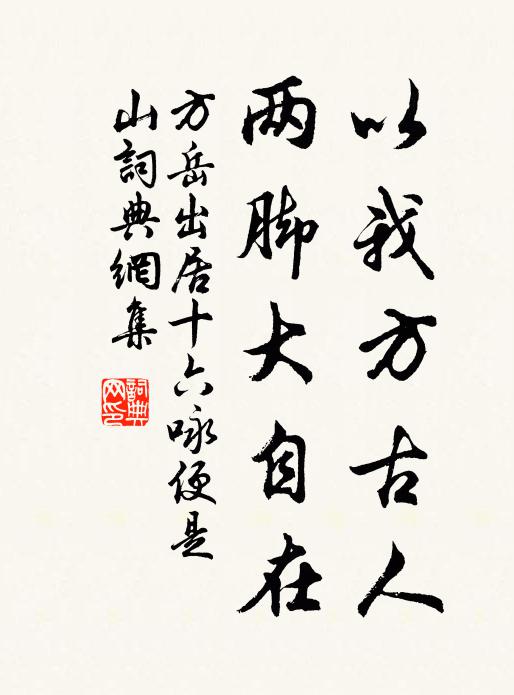 以我方古人
两脚大自在
方岳出居十六咏便是
山词典網集
詞典
网印